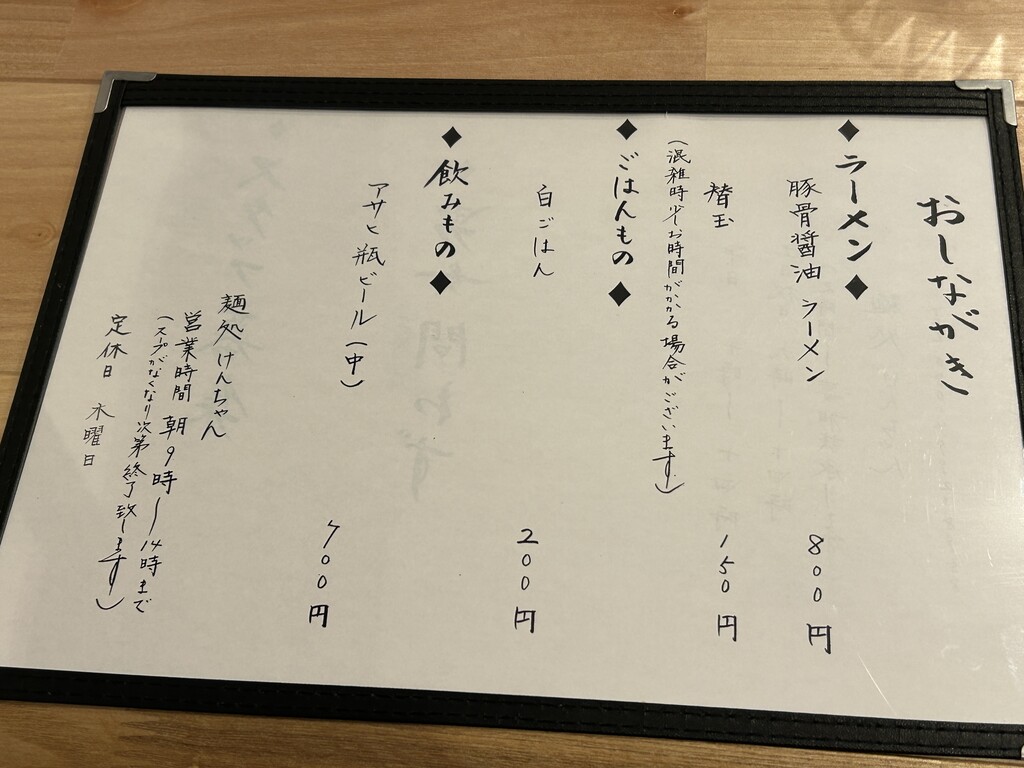 おしながき
◆ラーメン◆
豚骨醤油ラーメン 800円
替玉 150円
(混雑時少しお時間がかかる場合がございます。)
◆ごはんもの◆
白ごはん 200円
◆飲みもの◆
アサヒ瓶ビール(中) 700円
麺処 けんちゃん
営業時間 朝9時〜14時まで
(スープがなくなり次第終了致します)
定休日 木曜日